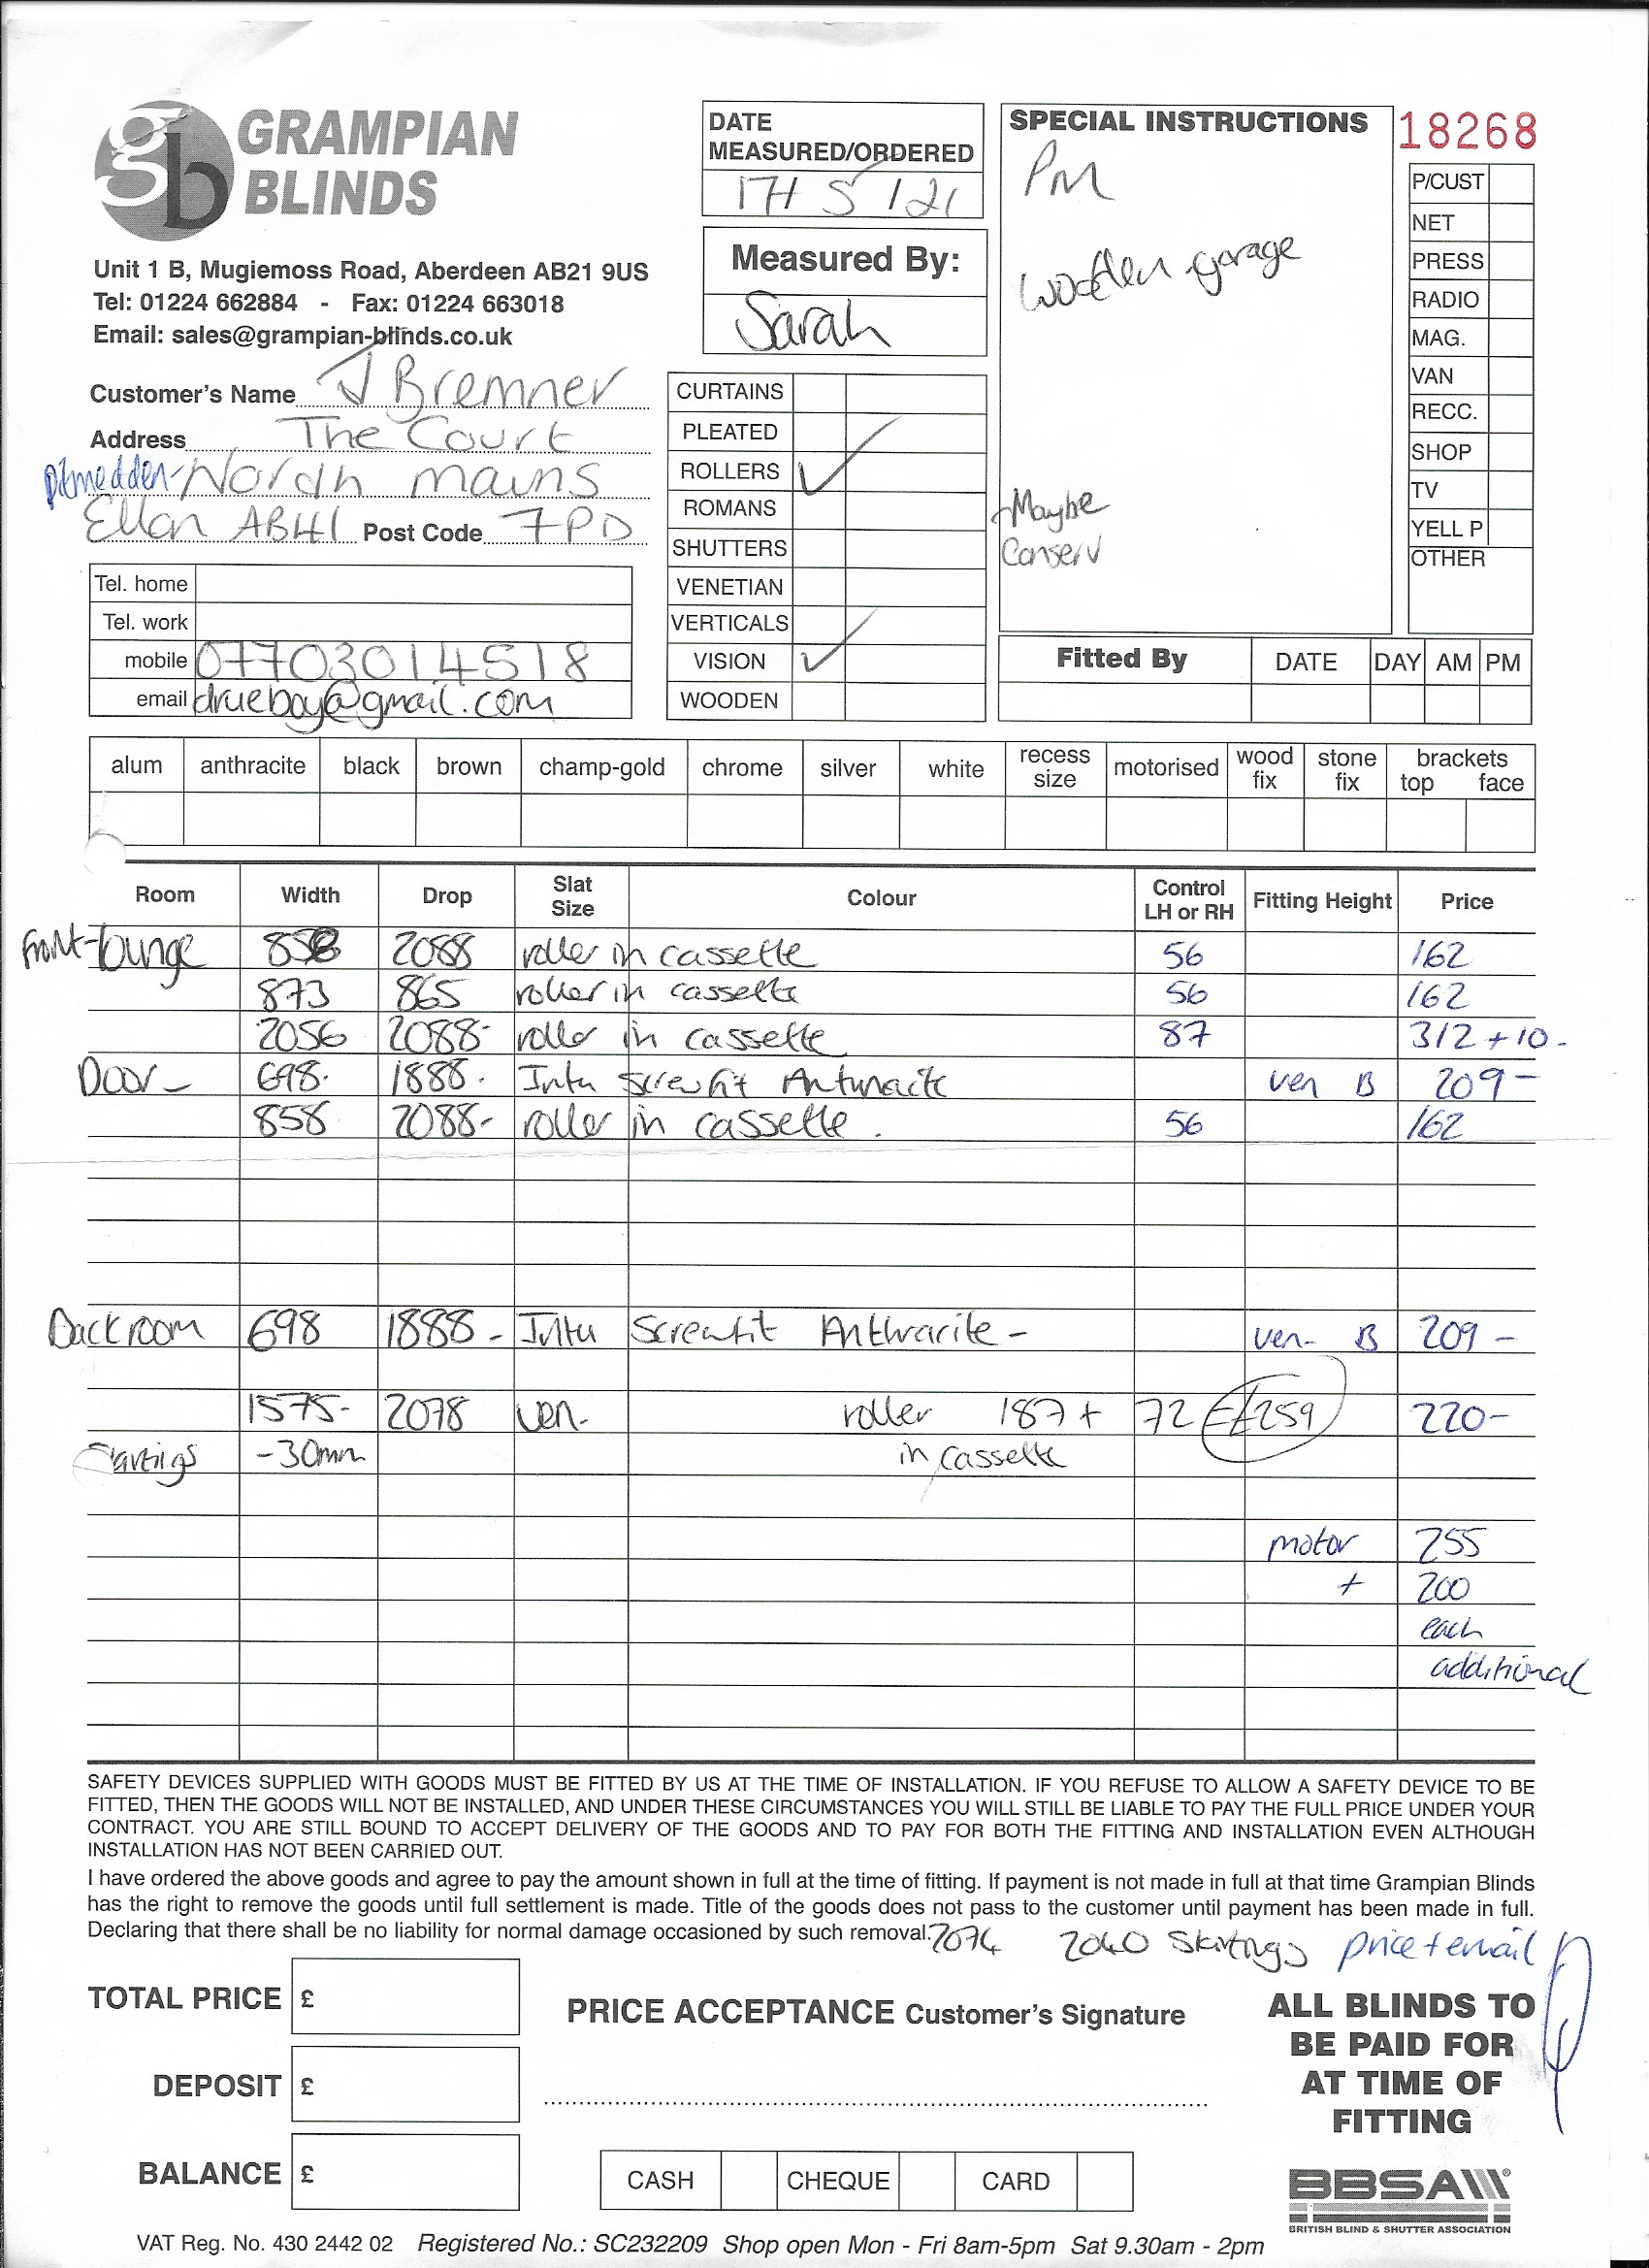 gb GRAMPIAN
BLINDS
Unit 1 B, Mugiemoss Road, Aberdeen AB21 9US
Tel: 01224 662884 - Fax: 01224 663018
Email: sales@grampian-blinds.co.uk
Customer's Name J Bremner
Address The Court
Pitmedden North mains
Ellon AB41 Post Code 7PD
Tel. home
Tel. work
mobile 07703014518
email drueboy@gmail.com
DATE
MEASURED/ORDERED
17/ 5 /21
Measured By:
Sarah
CURTAINS
PLEATED
ROLLERS ✓
ROMANS
SHUTTERS
VENETIAN
VERTICALS
VISION ✓
WOODEN
SPECIAL INSTRUCTIONS
PM
wooden garage
Maybe
Conserv
18268
P/CUST
NET
PRESS
RADIO
MAG.
VAN
RECC.
SHOP
TV
YELL P
OTHER
Fitted By DATE DAY AM PM
alum anthracite black brown champ-gold chrome silver white recess size motorised wood fix stone fix brackets top face
Room Width Drop Slat Size Colour Control LH or RH Fitting Height Price
Front lounge 858 2088 roller in cassette 56 162
873 865 roller in cassette 56 162
2056 2088- roller in cassette 87 312 + 10-
Door- 698- 1888- Intu screwfit Anthracite ven B 209-
858 2088- roller in cassette. 56 162
Back room 698 1888- Intu Screwfit Anthracite- ven- B 209-
1575- 2078 ven- roller 187 + 72 = £259 220-
Skirtings -30mm in cassette
motor 255
+ 200
each
additional
SAFETY DEVICES SUPPLIED WITH GOODS MUST BE FITTED BY US AT THE TIME OF INSTALLATION. IF YOU REFUSE TO ALLOW A SAFETY DEVICE TO BE
FITTED, THEN THE GOODS WILL NOT BE INSTALLED, AND UNDER THESE CIRCUMSTANCES YOU WILL STILL BE LIABLE TO PAY THE FULL PRICE UNDER YOUR
CONTRACT. YOU ARE STILL BOUND TO ACCEPT DELIVERY OF THE GOODS AND TO PAY FOR BOTH THE FITTING AND INSTALLATION EVEN ALTHOUGH
INSTALLATION HAS NOT BEEN CARRIED OUT.
I have ordered the above goods and agree to pay the amount shown in full at the time of fitting. If payment is not made in full at that time Grampian Blinds
has the right to remove the goods until full settlement is made. Title of the goods does not pass to the customer until payment has been made in full.
Declaring that there shall be no liability for normal damage occasioned by such removal. 2074 2040 Skirtings price + email
TOTAL PRICE £
DEPOSIT £
BALANCE £
PRICE ACCEPTANCE Customer's Signature
CASH CHEQUE CARD
ALL BLINDS TO
BE PAID FOR
AT TIME OF
FITTING
BBSA
BRITISH BLIND & SHUTTER ASSOCIATION
VAT Reg. No. 430 2442 02 Registered No.: SC232209 Shop open Mon - Fri 8am-5pm Sat 9.30am - 2pm